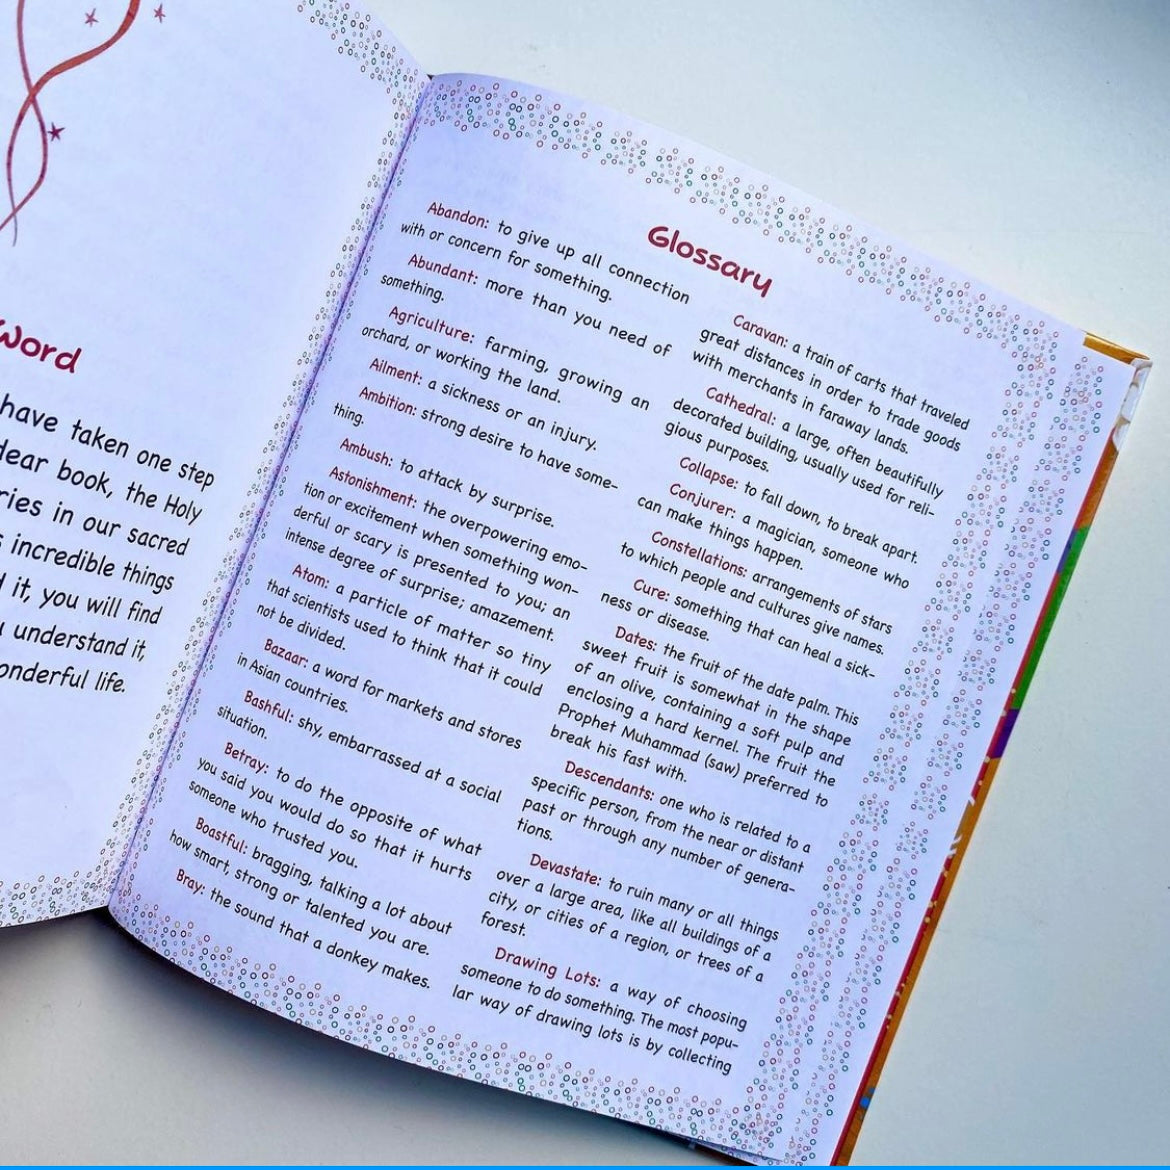 Word
have taken one step
dear book, the Holy
ries in our sacred
s incredible things
d it, you will find
understand it,
onderful life.
Glossary
Abandon: to give up all connection
with or concern for something.
Abundant: more than you need of
something.
Agriculture: farming, growing an
orchard, or working the land.
Ailment: a sickness or an injury.
Ambition: strong desire to have some-
thing.
Ambush: to attack by surprise.
Astonishment: the overpowering emo-
tion or excitement when something won-
derful or scary is presented to you; an
intense degree of surprise; amazement.
Atom: a particle of matter so tiny
that scientists used to think that it could
not be divided.
Bazaar: a word for markets and stores
in Asian countries.
Bashful: shy, embarrassed at a social
situation.
Betray: to do the opposite of what
you said you would do so that it hurts
someone who trusted you.
Boastful: bragging, talking a lot about
how smart, strong or talented you are.
Bray: the sound that a donkey makes.
Caravan: a train of carts that traveled
great distances in order to trade goods
with merchants in faraway lands.
Cathedral: a large, often beautifully
decorated building, usually used for reli-
gious purposes.
Collapse: to fall down, to break apart.
Conjurer: a magician, someone who
can make things happen.
Constellations: arrangements of stars
to which people and cultures give names.
Cure: something that can heal a sick-
ness or disease.
Dates: the fruit of the date palm. This
sweet fruit is somewhat in the shape
of an olive, containing a soft pulp and
enclosing a hard kernel. The fruit the
Prophet Muhammad (saw) preferred to
break his fast with.
Descendants: one who is related to a
specific person, from the near or distant
past or through any number of genera-
tions.
Devastate: to ruin many or all things
over a large area, like all buildings of a
city, or cities of a region, or trees of a
forest.
Drawing Lots: a way of choosing
someone to do something. The most popu-
lar way of drawing lots is by collecting